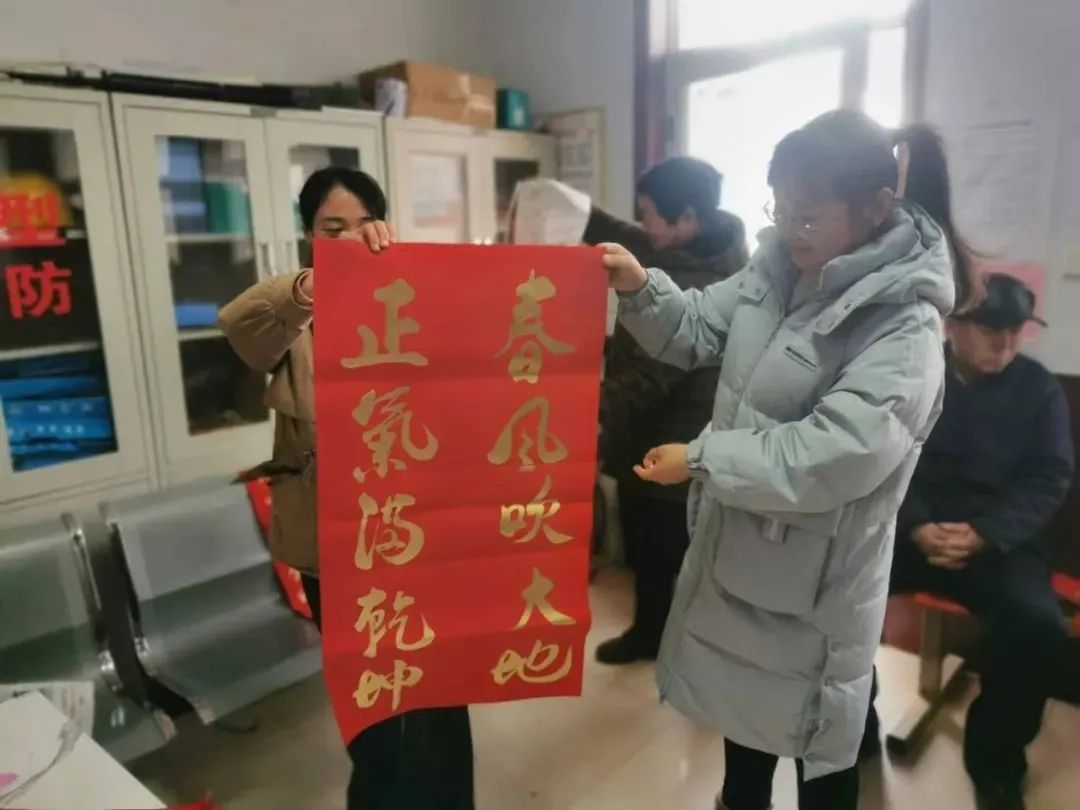 春风吹大地
正氣满乾坤
防